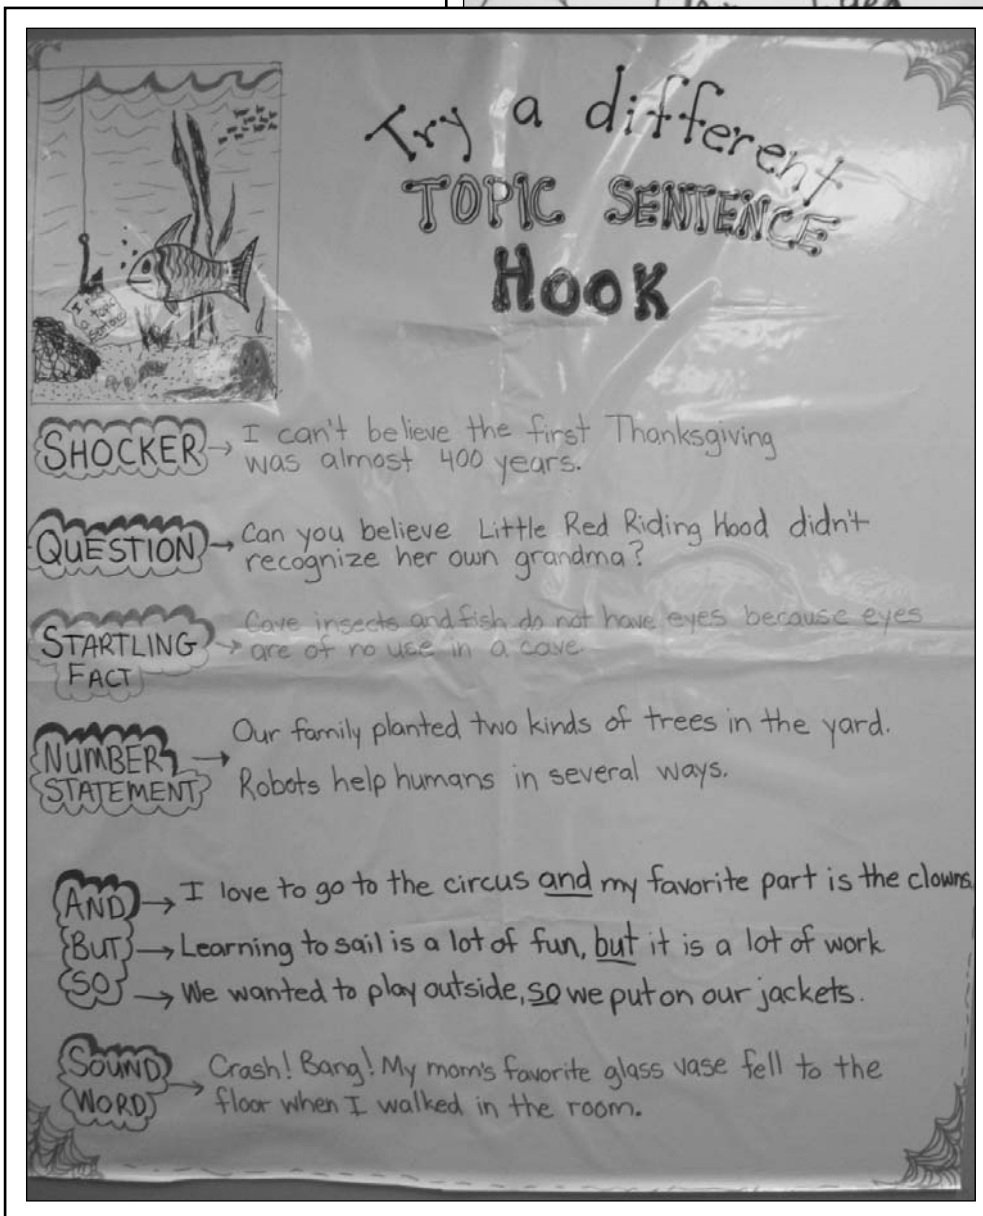 Try a different
TOPIC SENTENCE
HOOK
I
topic
a
sentence
SHOCKER → I can't believe the first Thanksgiving
was almost 400 years.
QUESTION → Can you believe Little Red Riding Hood didn't
recognize her own grandma?
STARTLING
FACT → Cave insects and fish do not have eyes because eyes
are of no use in a cave.
NUMBER
STATEMENT → Our family planted two kinds of trees in the yard.
Robots help humans in several ways.
AND → I love to go to the circus and my favorite part is the clowns.
BUT → Learning to sail is a lot of fun, but it is a lot of work
SO → We wanted to play outside, so we put on our jackets.
SOUND
WORD → Crash! Bang! My mom's favorite glass vase fell to the
floor when I walked in the room.